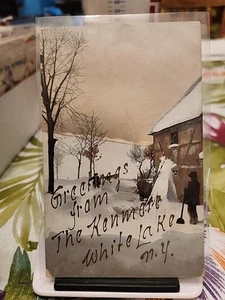 Greetings
from
The Kenmore
White Lake
N.Y.